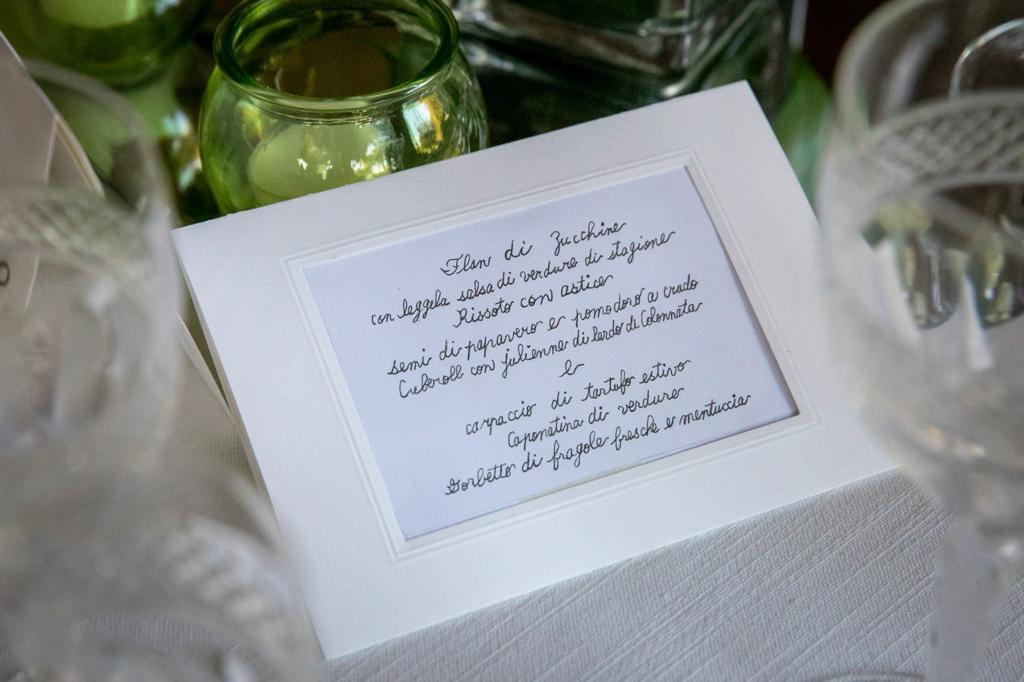 Flan di Zucchine
con leggela salsa di verdure di stagione
Rissoto con astice
semi di papavero e pomodoro a crudo
Cuberoll con julienne di lardo di Colonnata
e
carpaccio di tartufo estivo
Caponatina di verdure
Sorbetto di fragole fresche e mentuccia